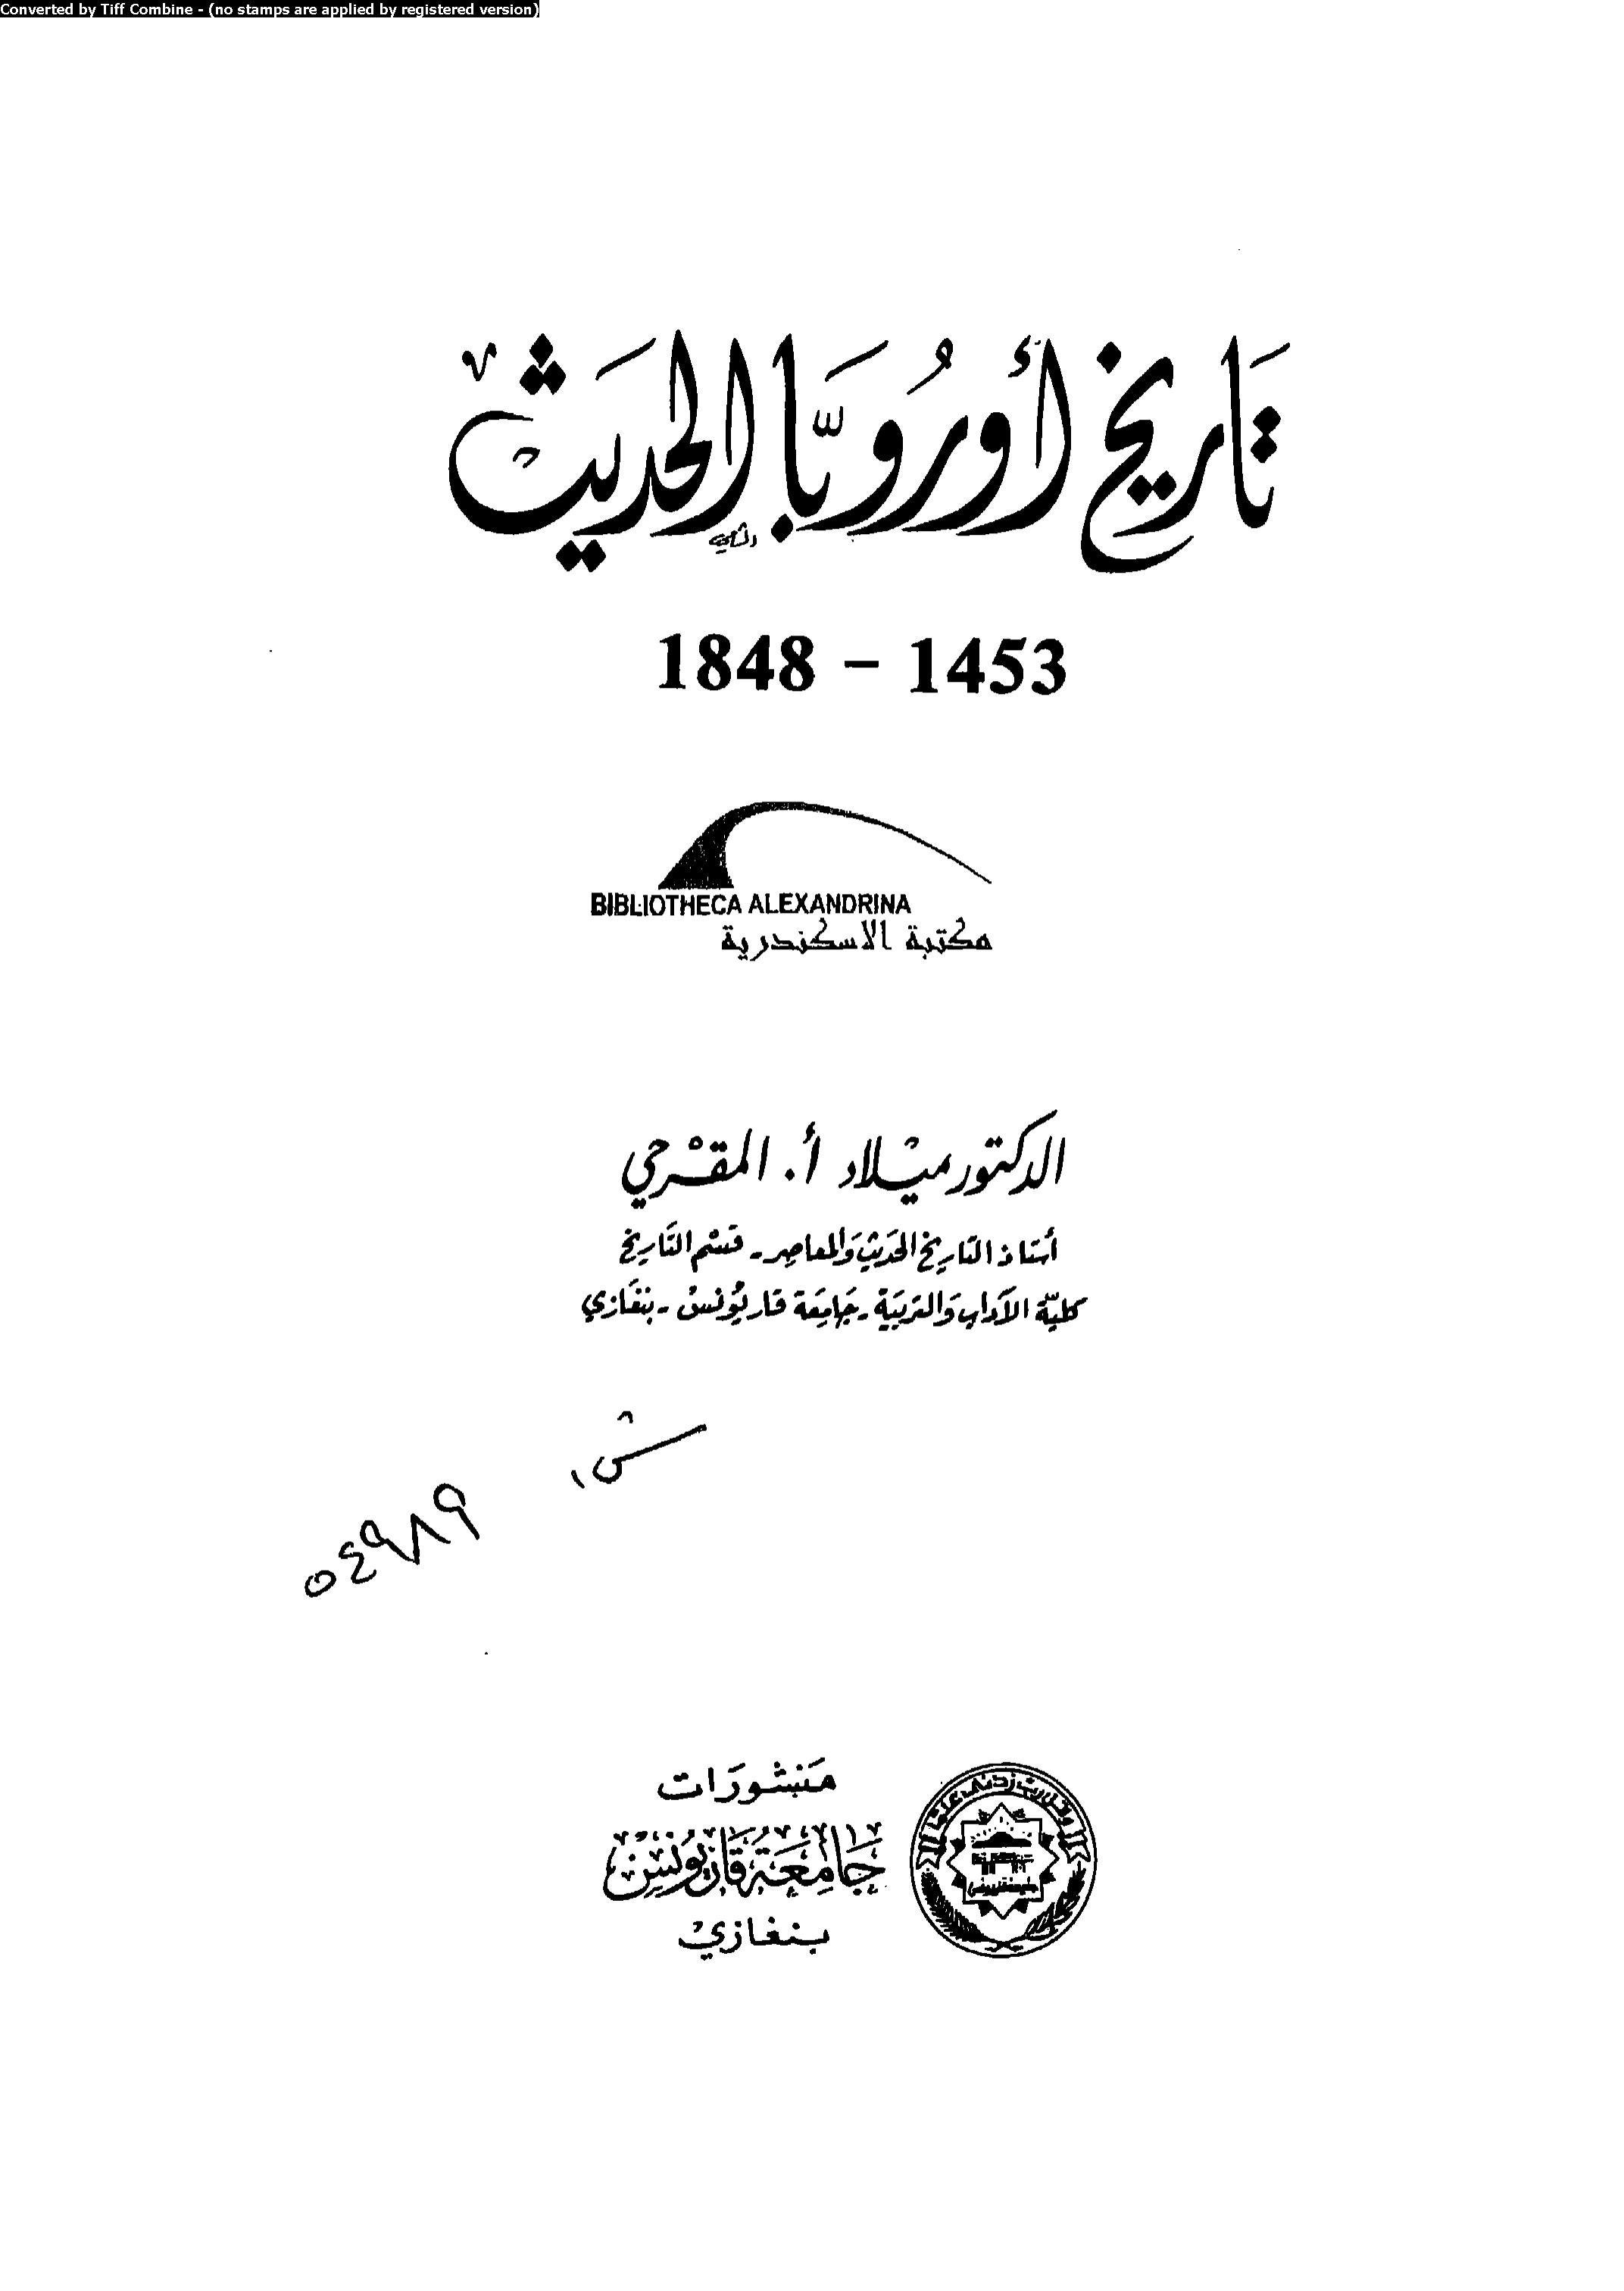 Converted by Tiff Combine - (no stamps are applied by registered version)
تاريخ أوروبا الحديث
1848 – 1453
BIBLIOTHECA ALEXANDRINA
مكتبة الاسكندرية
الدكتور ميلاد أ. المقرحي
أستاذ التاريخ الحديث والمعاصر - قسم التاريخ
كلية الآداب والتربية - جامعة قاريونس - بنغازي
٥٤٩٨٩
منشورات
جامعة قاريونس
بنغازي
وقل رب زدني علما